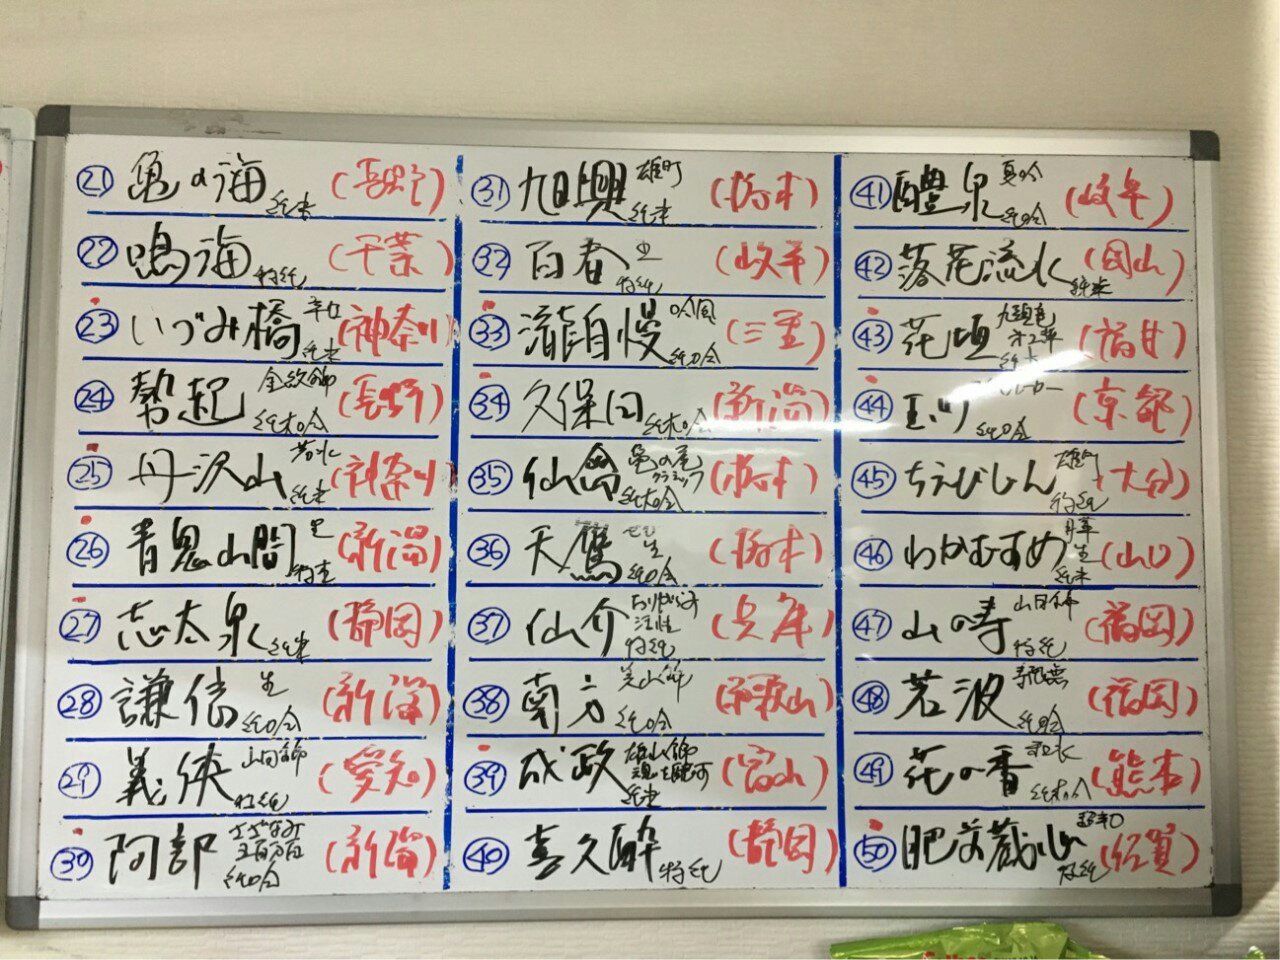 ㉑ 亀の海 純米 (長野)
㉒ 鳴海 特純 (千葉)
㉓ いづみ橋 辛口 純米 (神奈川)
㉔ 勢起 金紋錦 純大吟 (長野)
㉕ 丹沢山 若水 純米 (神奈川)
㉖ 青鬼山間 生 特本 (新潟)
㉗ 志太泉 純米 (静岡)
㉘ 謙信 生 純吟 (新潟)
㉙ 義侠 山田錦 特純 (愛知)
㉚ 阿部 五百万石 純吟 (新潟)
㉛ 旭興 雄町 純米 (栃木)
㉜ 百春 生 特純 (岐阜)
㉝ 瀧自慢 吟風 純吟 (三重)
㉞ 久保田 純大吟 (新潟)
㉟ 仙禽 亀の尾 クラシック 純大吟 (栃木)
㊱ 天鷹 生 純吟 (栃木)
㊲ 仙介 おりがらみ 活性 特純 (兵庫)
㊳ 南方 美山錦 純吟 (和歌山)
㊴ 成政 雄山錦 純米 (富山)
㊵ 喜久酔 特純 (静岡)
㊶ 醴泉 夏吟 純吟 (岐阜)
㊷ 落花流水 純米 (岡山)
㊸ 花垣 純米 (福井)
㊹ 玉川 純吟 (京都)
㊺ ちえびじん 雄町 特純 (大分)
㊻ わかむすめ 生 純米 (山口)
㊼ 山の寿 山田錦 特純 (福岡)
㊽ 若波 純吟 (福岡)
㊾ 花の香 和水 純大吟 (熊本)
㊿ 肥前蔵心 超辛口 特純 (佐賀)